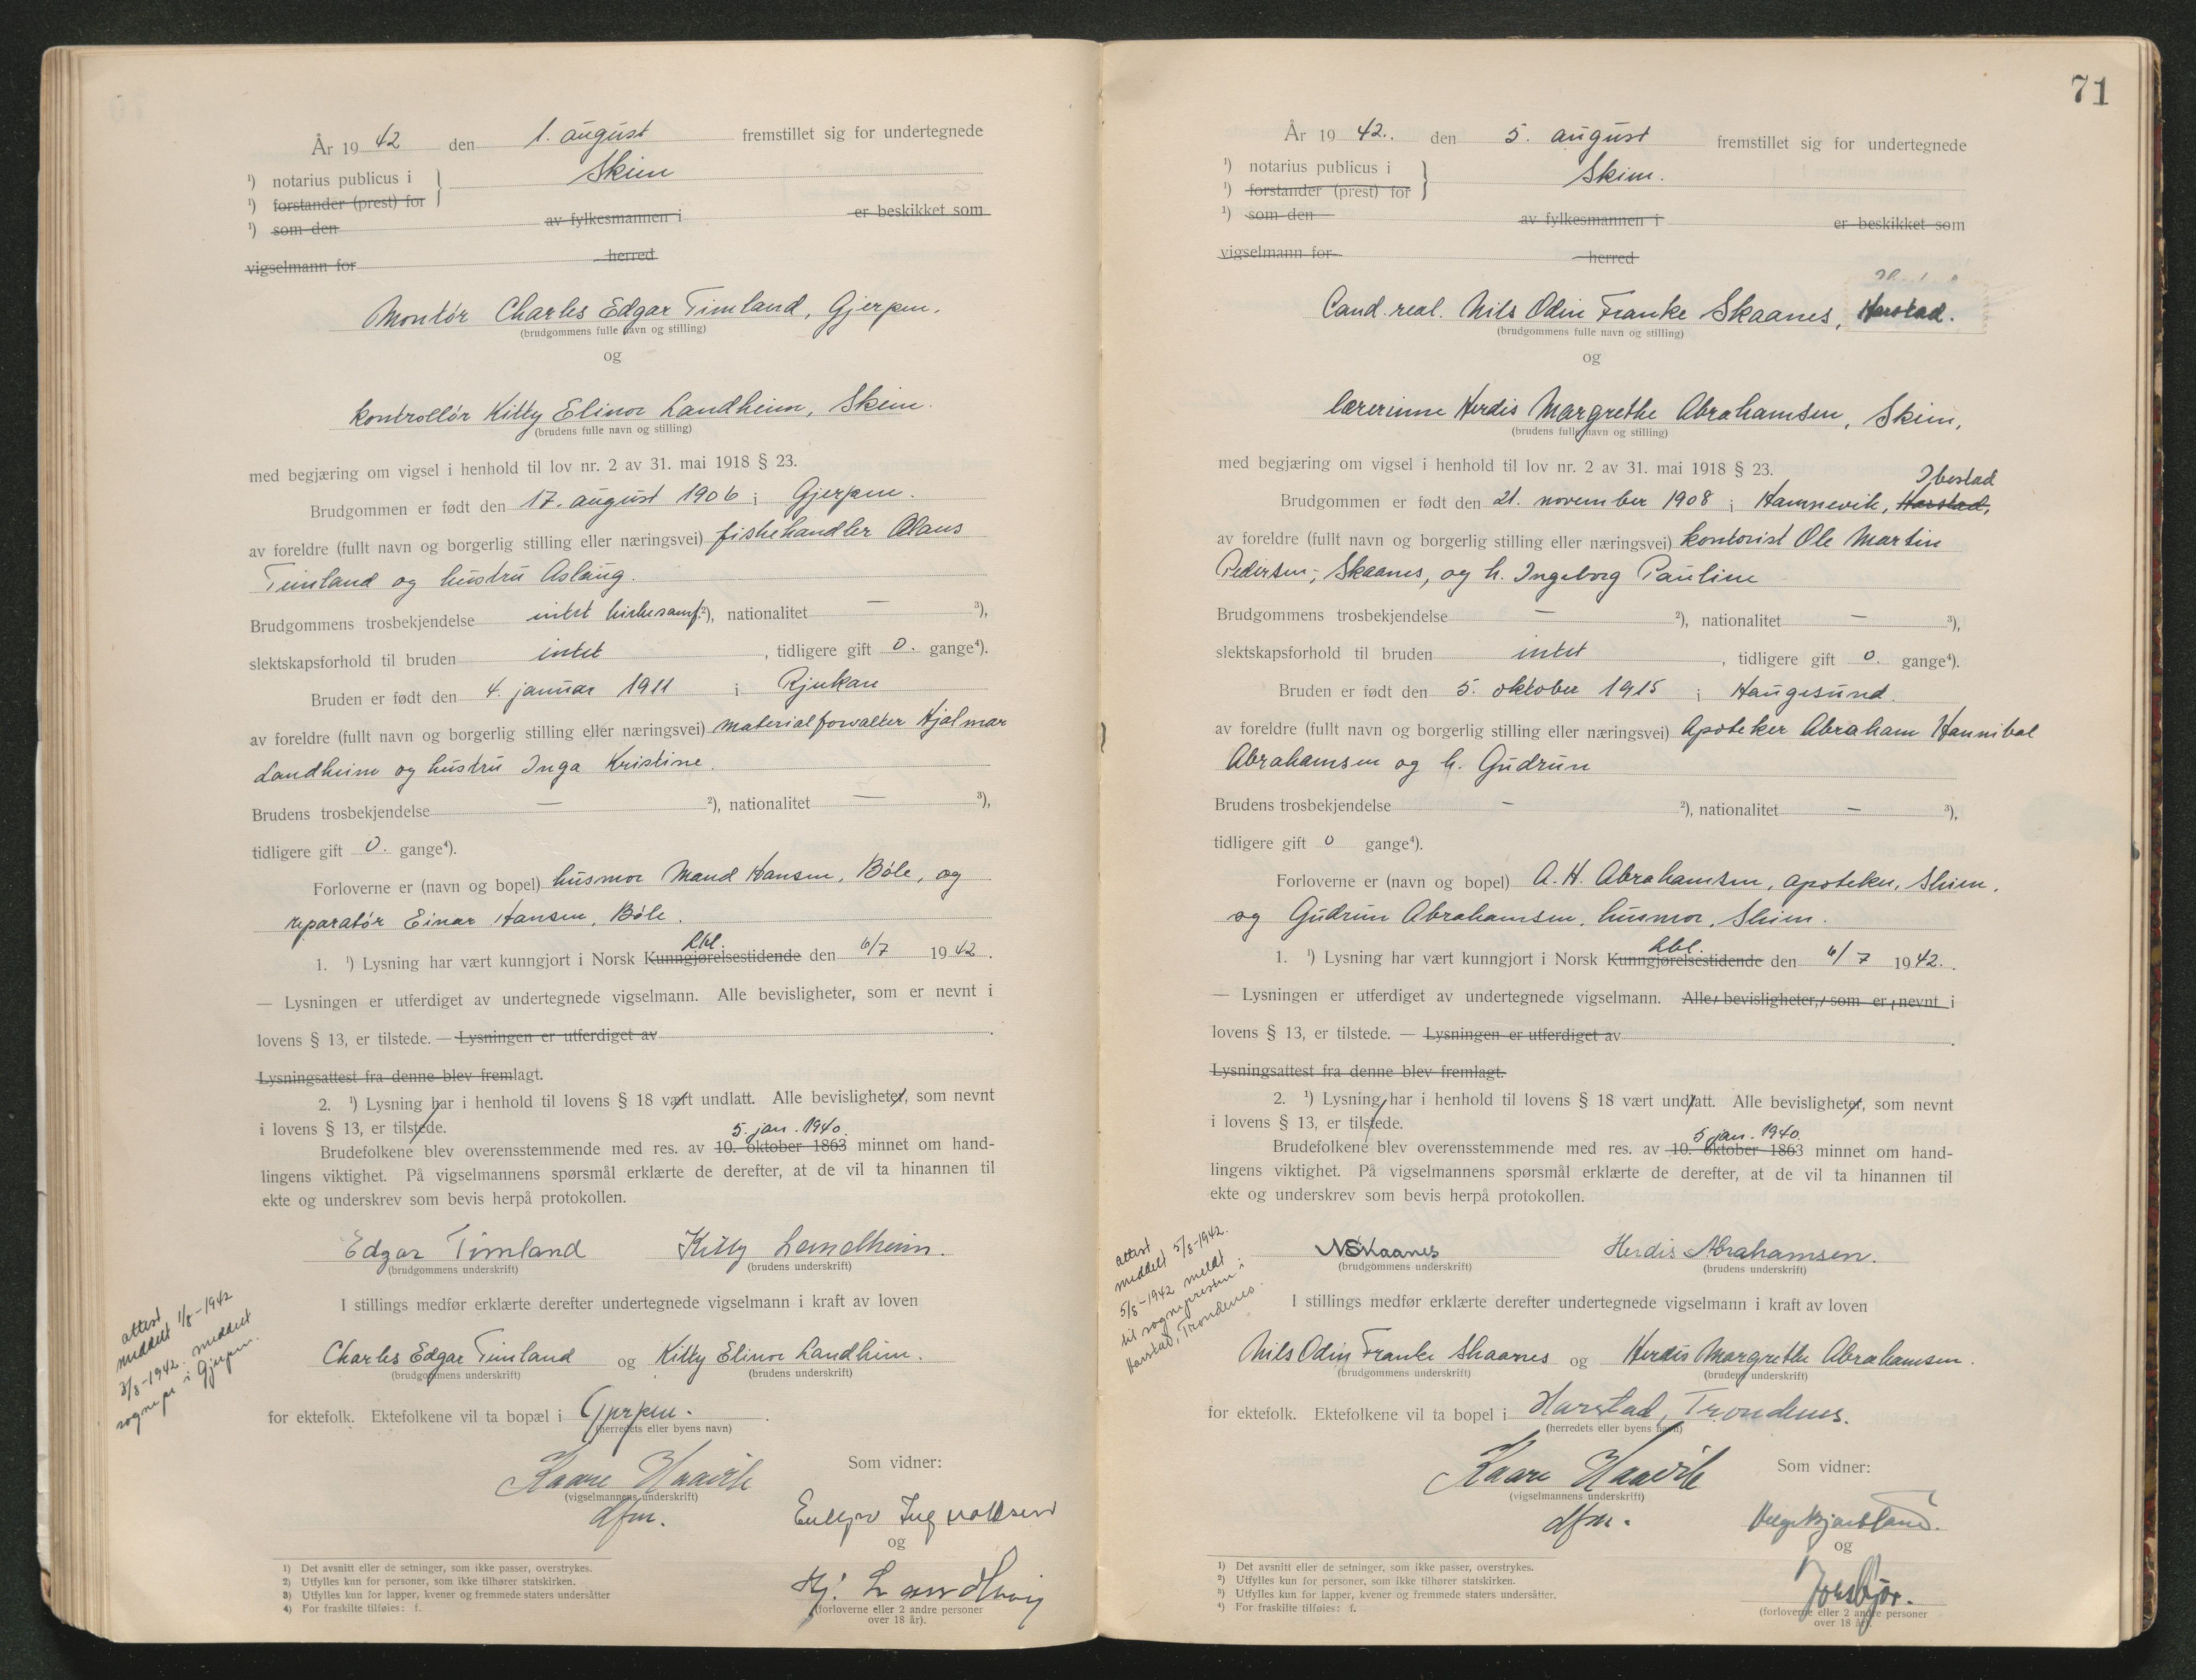 År 1942 den 1. august fremstillet sig for undertegnede
¹) notarius publicus i Skien
¹) forstander (prest) for
¹) som den av fylkesmannen i er beskikket som
vigselmann for herred
Montør Charles Edgar Timland, Gjerpen.
(brudgommens fulle navn og stilling)
og
kontrollør Kitty Elinor Landheim, Skien.
(brudens fulle navn og stilling)
med begjæring om vigsel i henhold til lov nr. 2 av 31. mai 1918 § 23.
Brudgommen er født den 17. august 1906 i Gjerpen.
av foreldre (fullt navn og borgerlig stilling eller næringsvei) fiskehandler Olaus
Timland og hustru Aslaug.
Brudgommens trosbekjendelse intet kirkesamf. ²), nationalitet — ³),
slektskapsforhold til bruden intet, tidligere gift 0. gange⁴).
Bruden er født den 4. januar 1911 i Rjukan
av foreldre (fullt navn og borgerlig stilling eller næringsvei) materialforvalter Hjalmar
Landheim og hustru Inga Kristine.
Brudens trosbekjendelse — ²), nationalitet — ³),
tidligere gift 0. gange⁴).
Forloverne er (navn og bopel) husmor Maud Hansen, Bøle, og
reparatør Einar Hansen, Bøle.
1. ¹) Lysning har vært kunngjort i Norsk Kunngjørelsestidende den 6/7 1942.
— Lysningen er utferdiget av undertegnede vigselmann. Alle bevisligheter, som er nevnt i
lovens § 13, er tilstede. — Lysningen er utferdiget av
Lysningsattest fra denne blev fremlagt.
2. ¹) Lysning har i henhold til lovens § 18 vært undlatt. Alle bevisligheter, som nevnt
i lovens § 13, er tilstede.
5. jan. 1940.
Brudefolkene blev overensstemmende med res. av 10. oktober 1863 minnet om hand-
lingens viktighet. På vigselmannens spørsmål erklærte de derefter, at de vil ta hinannen til
ekte og underskrev som bevis herpå protokollen.
Edgar Timland Kitty Landheim.
(brudgommens underskrift) (brudens underskrift)
attest
meddelt 1/8-1942
3/8-1942 meddelt
sognepr. i Gjerpen.
I stillings medfør erklærte derefter undertegnede vigselmann i kraft av loven
Charles Edgar Timland og Kitty Elinor Landheim.
(brudgommens underskrift) (brudens underskrift)
for ektefolk. Ektefolkene vil ta bopæl i Gjerpen.
(herredets eller byens navn)
Kaare Haavik
(vigselmannens underskrift)
dfm.
Som vidner:
og
(forloverne eller 2 andre personer
over 18 år).
1) Det avsnitt eller de setninger, som ikke passer, overstrykes.
2) Utfylles kun for personer, som ikke tilhører statskirken.
3) Utfylles kun for lapper, kvener og fremmede staters undersåtter
4) For fraskilte tilføies: f.
71
År 1942. den 5. august fremstillet sig for undertegnede
¹) notarius publicus i Skien.
¹) forstander (prest) for
¹) som den av fylkesmannen i er beskikket som
vigselmann for herred
Cand. real. Nils Odin Franke Skaanes, Harstad.
(brudgommens fulle navn og stilling)
og
lærerinne Herdis Margrethe Abrahamsen, Skien,
(brudens fulle navn og stilling)
med begjæring om vigsel i henhold til lov nr. 2 av 31. mai 1918 § 23.
Ibestad
Brudgommen er født den 21. november 1908 i Hamnevik, Harstad,
av foreldre (fullt navn og borgerlig stilling eller næringsvei) kontorist Ole Martin
Pedersen, Skaanes, og h. Ingeborg Pauline
Brudgommens trosbekjendelse — ²), nationalitet — ³),
slektskapsforhold til bruden intet, tidligere gift 0. gange⁴).
Bruden er født den 5. oktober 1915 i Haugesund.
av foreldre (fullt navn og borgerlig stilling eller næringsvei) Apoteker Abraham Hannibal
Abrahamsen og h. Gudrun
Brudens trosbekjendelse — ²), nationalitet — ³),
tidligere gift 0 gange⁴).
Forloverne er (navn og bopel) A. H. Abrahamsen, apoteker, Skien,
og Gudrun Abrahamsen, husmor, Skien.
1. ¹) Lysning har vært kunngjort i Norsk Kunngjørelsestidende den 6/7 1942.
— Lysningen er utferdiget av undertegnede vigselmann. Alle bevisligheter, som er nevnt i
lovens § 13, er tilstede. — Lysningen er utferdiget av
Lysningsattest fra denne blev fremlagt.
2. ¹) Lysning har i henhold til lovens § 18 vært undlatt. Alle bevisligheter, som nevnt
i lovens § 13, er tilstede.
5 jan. 1940.
Brudefolkene blev overensstemmende med res. av 10. oktober 1863 minnet om hand-
lingens viktighet. På vigselmannens spørsmål erklærte de derefter, at de vil ta hinannen til
ekte og underskrev som bevis herpå protokollen.
NSkaanes Herdis Abrahamsen.
(brudgommens underskrift) (brudens underskrift)
attest
meddelt 5/8-1942.
5/8-1942 meldt
til sognepresten i
Harstad, Trondenes.
I stillings medfør erklærte derefter undertegnede vigselmann i kraft av loven
Nils Odin Franke Skaanes og Herdis Margrethe Abrahamsen.
(brudgommens underskrift) (brudens underskrift)
for ektefolk. Ektefolkene vil ta bopel i Harstad, Trondenes.
(herredets eller byens navn)
Kaare Haavik
(vigselmannens underskrift)
dfm.
Som vidner:
og
(forloverne eller 2 andre personer
over 18 år).
1) Det avsnitt eller de setninger, som ikke passer, overstrykes.
2) Utfylles kun for personer, som ikke tilhører statskirken.
3) Utfylles kun for lapper, kvener og fremmede staters undersåtter.
4) For fraskilte tilføies: f.